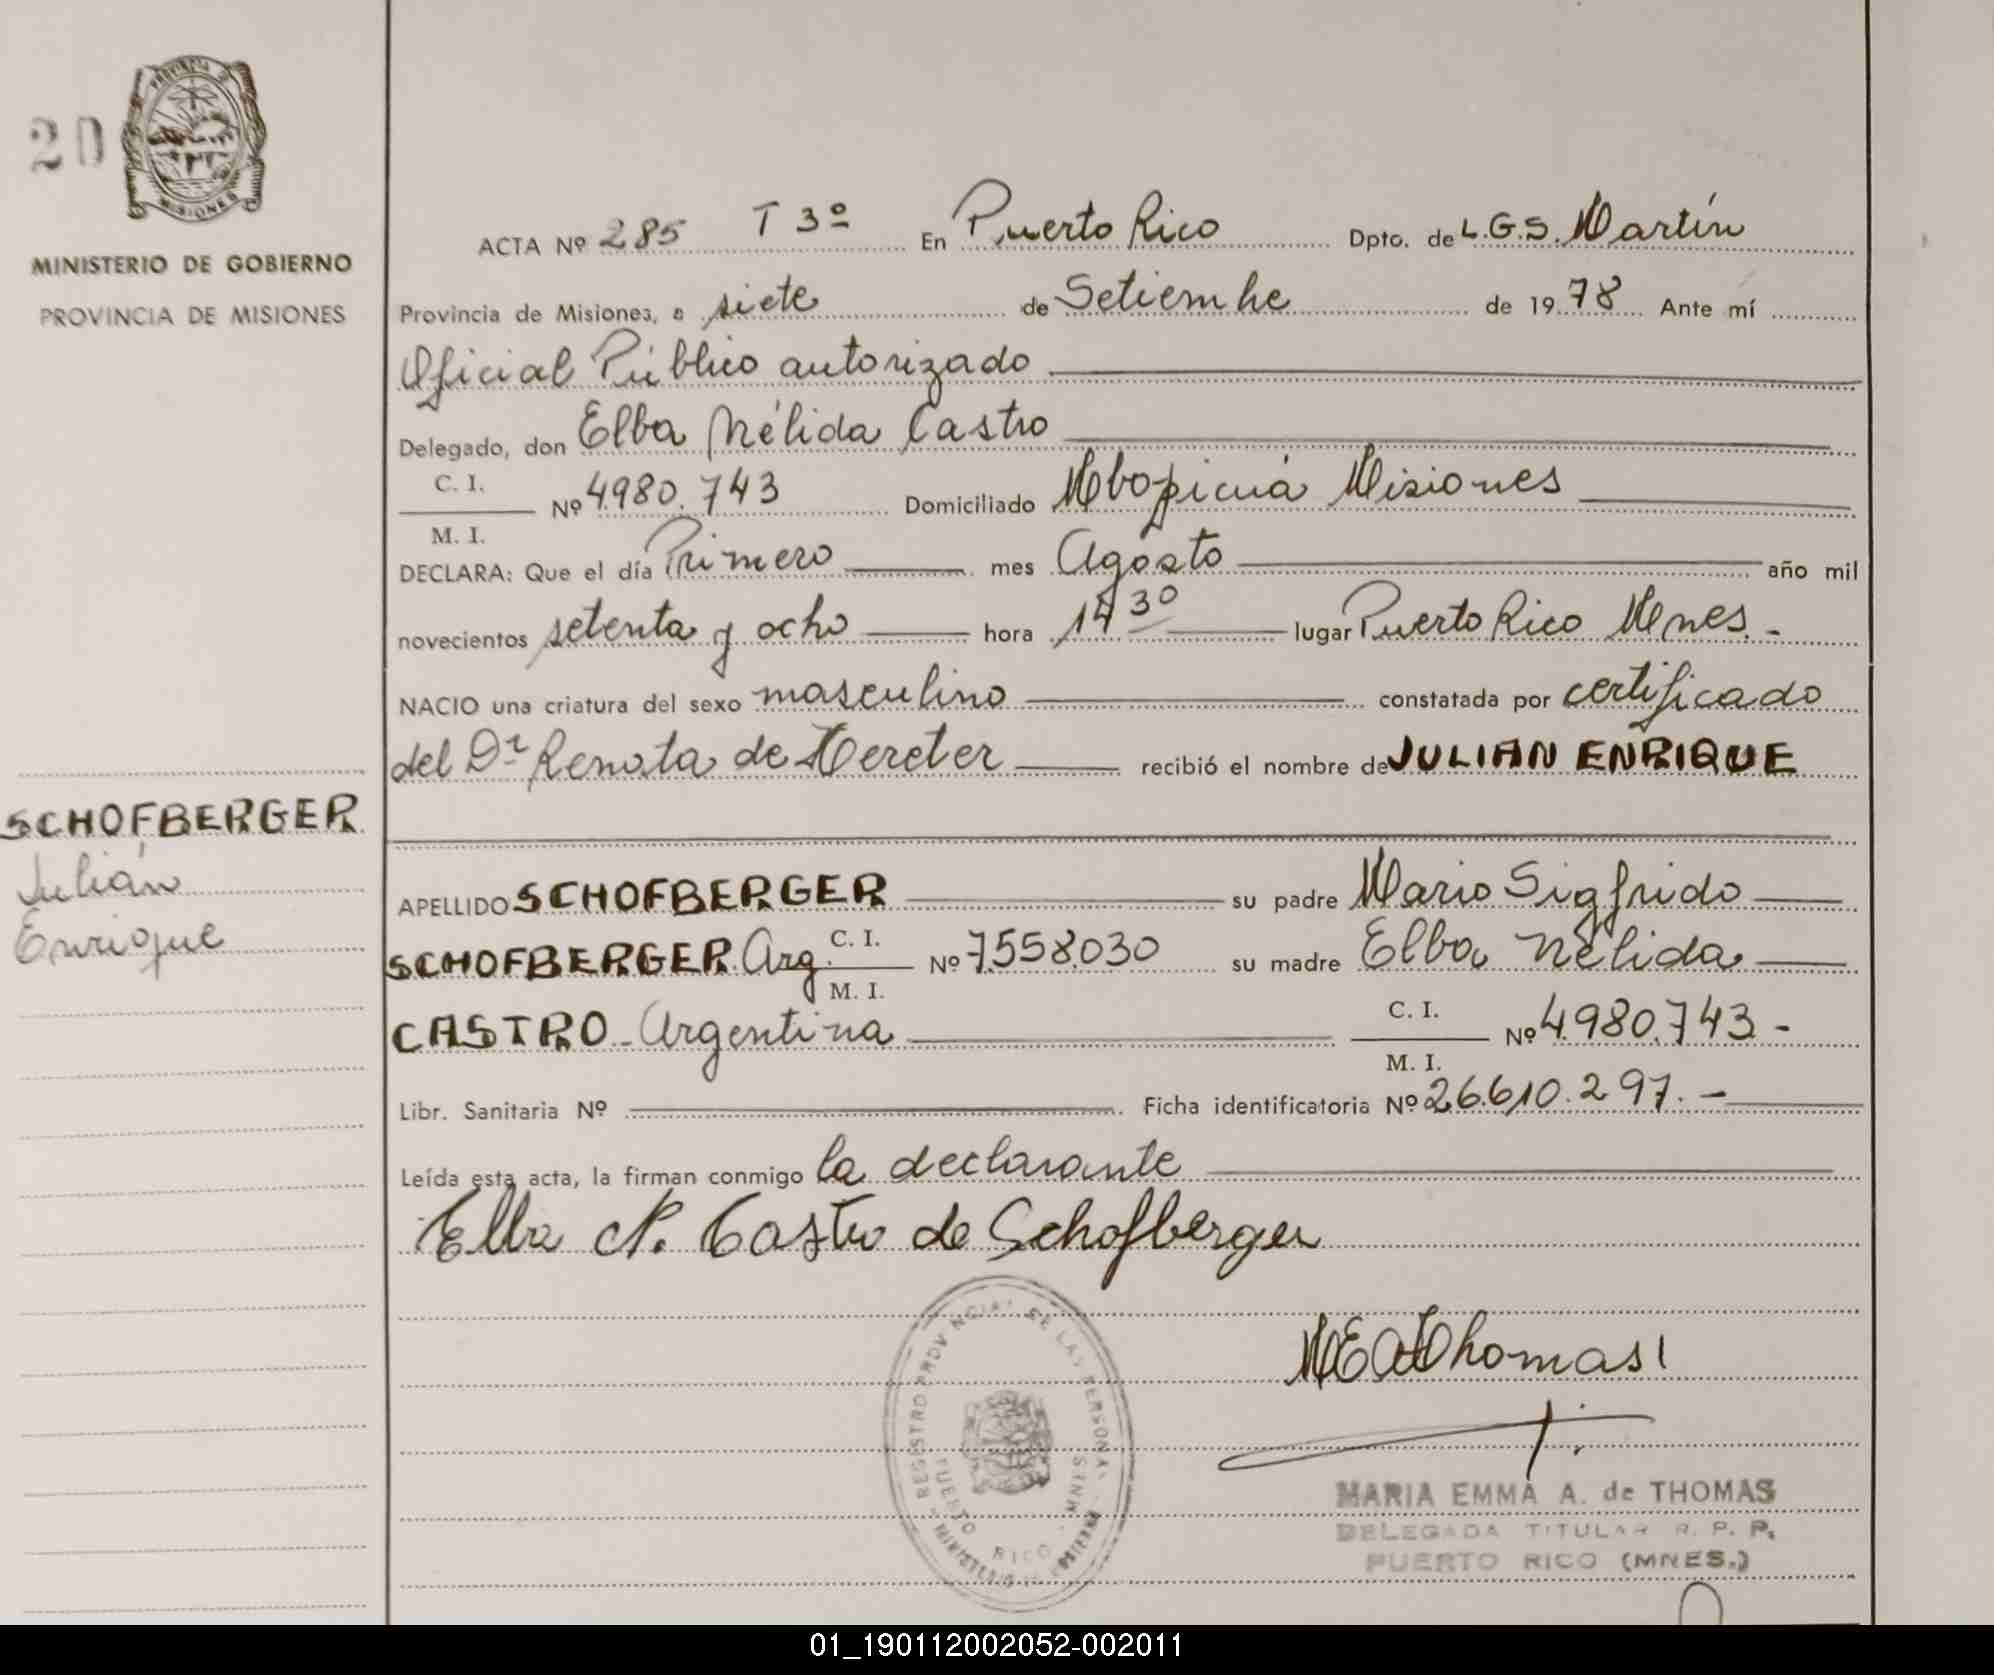 20
PROVINCIA DE
MISIONES
MINISTERIO DE GOBIERNO
PROVINCIA DE MISIONES
SCHOFBERGER
Julián
Enrique
ACTA Nº 285 T 3º En Puerto Rico Dpto. de L.G.S. Martín
Provincia de Misiones, a siete de Setiembre de 1978 Ante mí
Oficial Público autorizado
Delegado, don Elba Nélida Castro
C. I.
Nº 4980.743 Domiciliado Mbopicuá Misiones
M. I.
DECLARA: Que el día Primero mes Agosto año mil
novecientos setenta y ocho hora 14 30 lugar Puerto Rico Mnes.-
NACIO una criatura del sexo masculino constatada por certificado
del Dr Renata de Hereter recibió el nombre de JULIAN ENRIQUE
APELLIDO SCHOFBERGER su padre Mario Sigfrido
SCHOFBERGER Arg. C. I. Nº 7.558.030 su madre Elba Nélida
M. I.
CASTRO - Argentina C. I. Nº 4.980.743-
M. I.
Libr. Sanitaria Nº Ficha identificatoria Nº 26.610.297.-
Leída esta acta, la firman conmigo la declarante
Elba N. Castro de Schofberger
MEAdThomas
REGISTRO PROVINCIAL DE LAS PERSONAS
PUERTO RICO MNES
MINISTERIO DE GOBIERNO
MARIA EMMA A. de THOMAS
DELEGADA TITULAR R. P. P.
PUERTO RICO (MNES.)
01_190112002052-002011